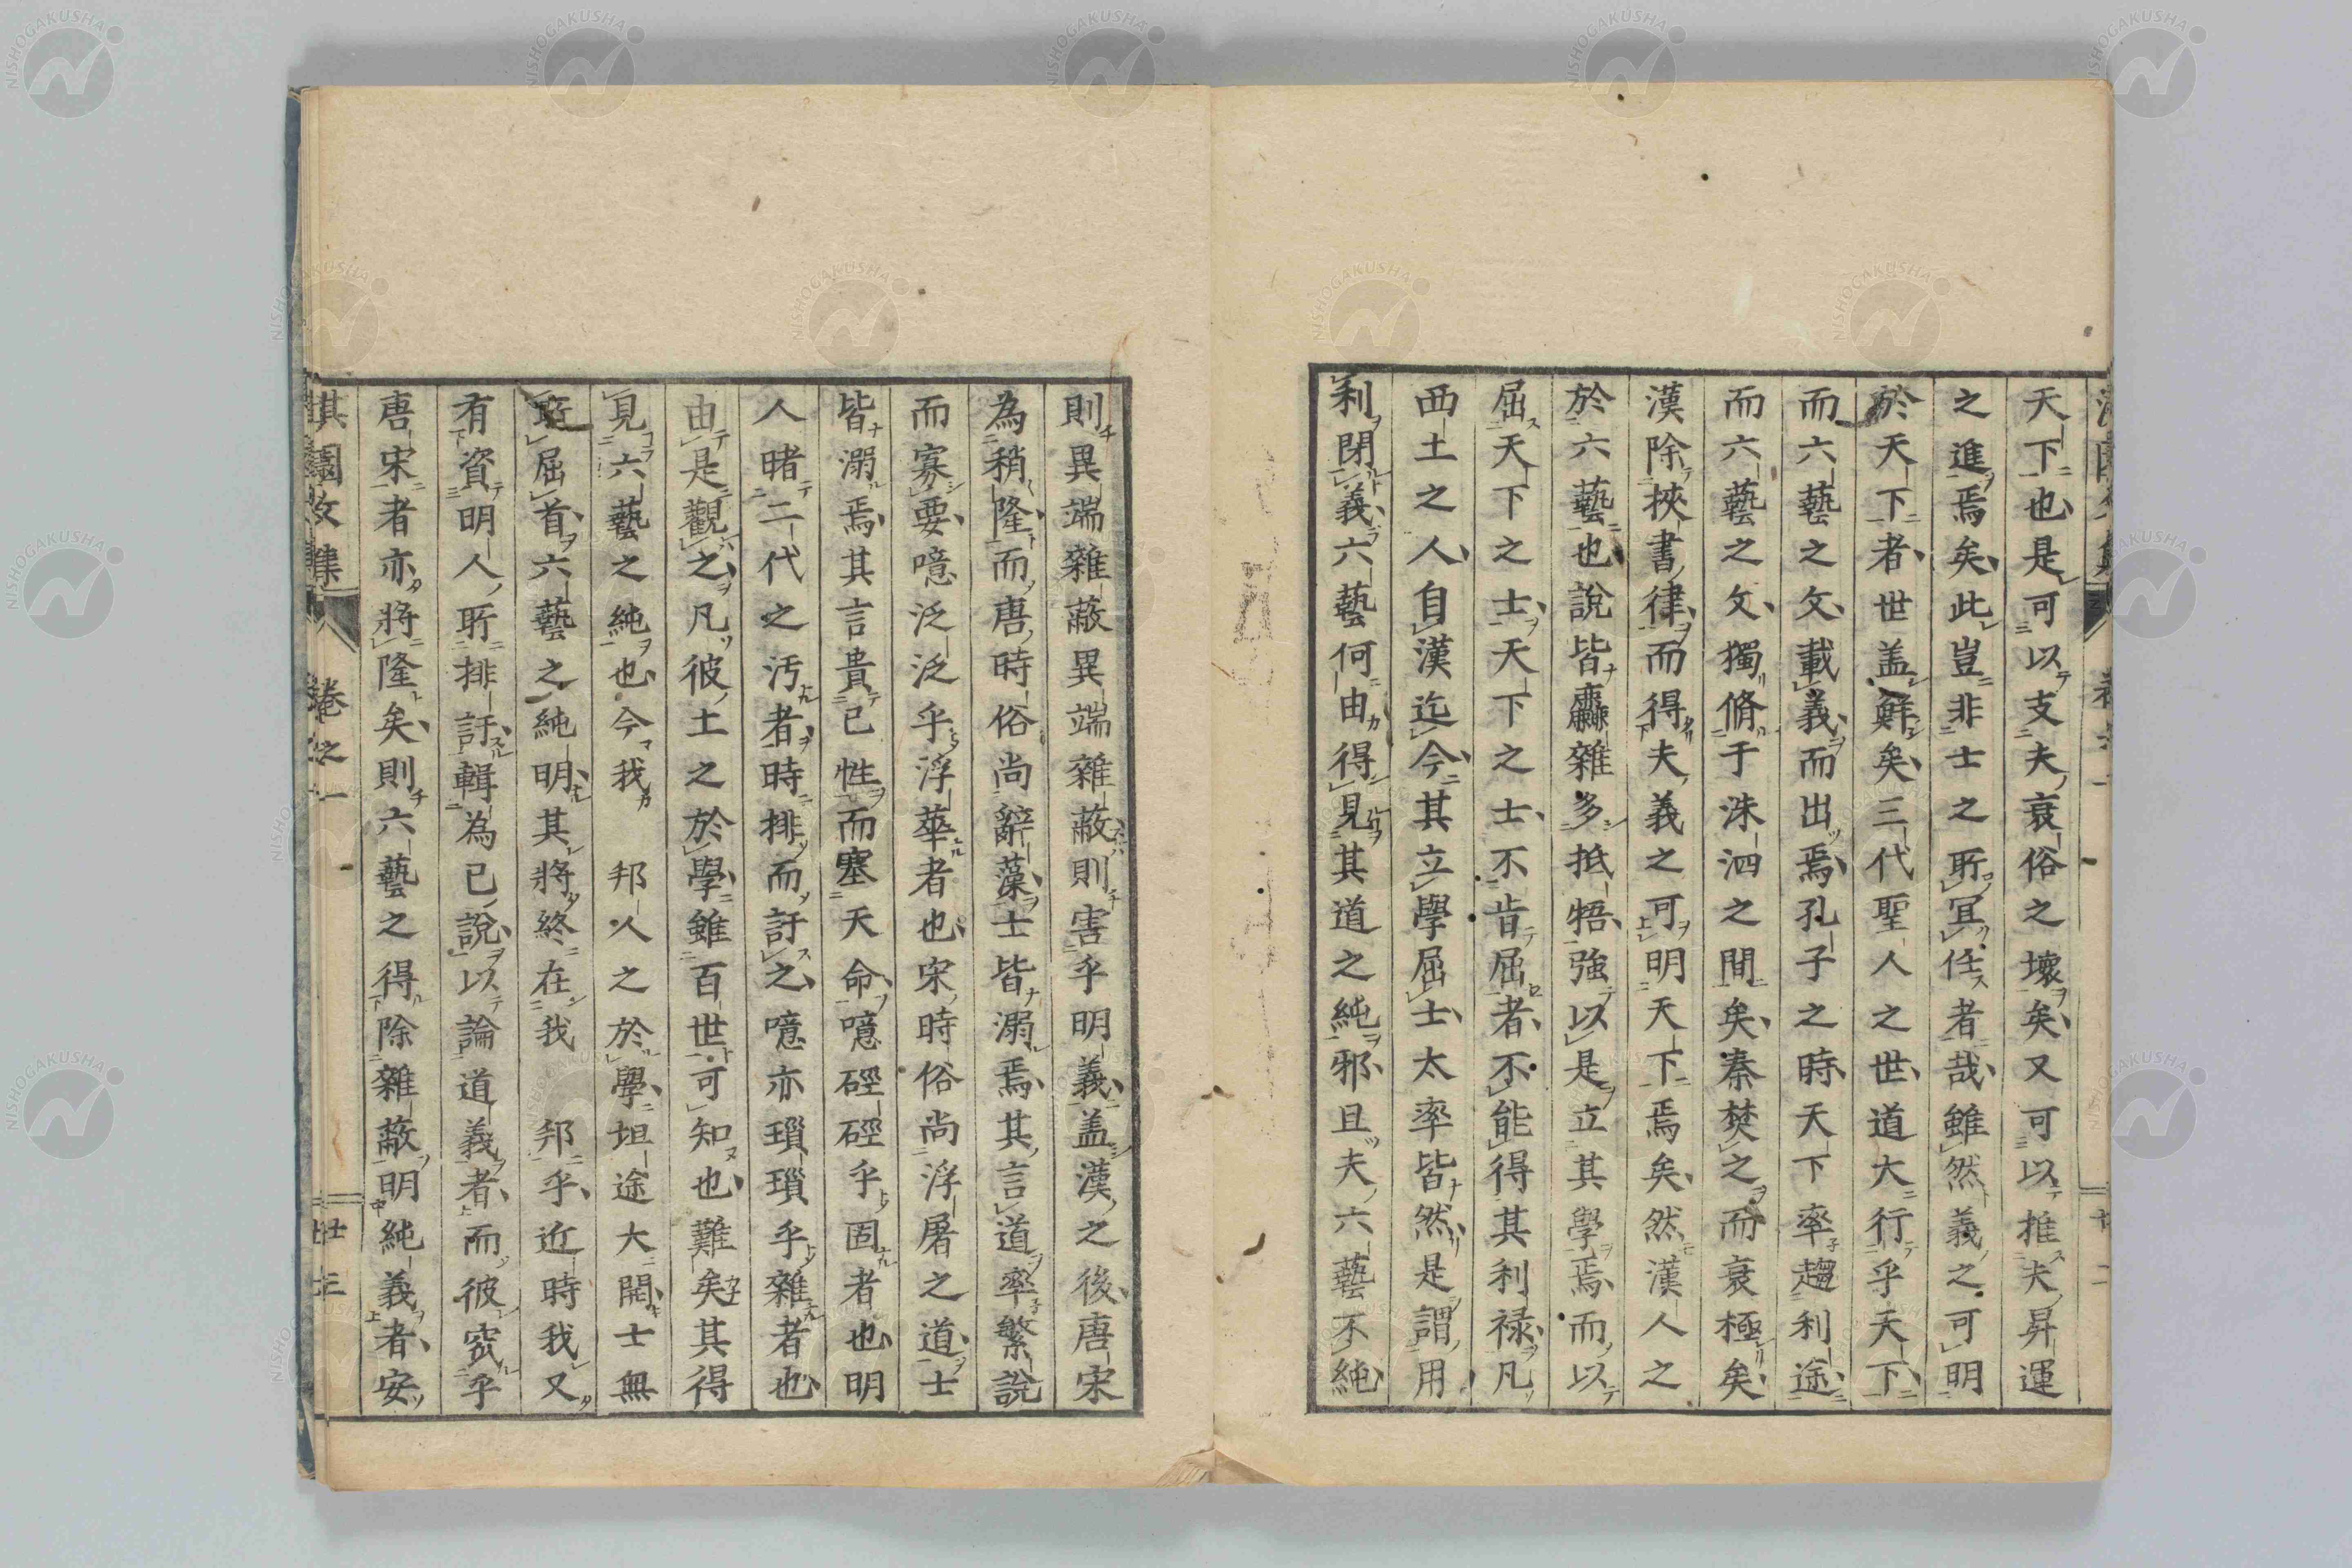 天下也是可以支夫衰俗之壞矣又可以推夫昇運
之進焉矣此豈非士之所冝任者哉雖然義之可明
於天下者世盖鮮矣三代聖人之世道大行乎天下
而六藝之文載義而出焉孔子之時天下率趨利途
而六藝之文獨脩于洙泗之間矣秦焚之而衰極矣
漢除挾書律而得夫義之可明天下焉矣然漢人之
於六藝也說皆麤雜多抵牾強以是立其學焉而以
屈天下之士天下之士不肯屈者不能得其利祿凡
西土之人自漢迄今其立學屈士太率皆然是謂用
利閉義六藝何由得見其道之純邪且夫六藝不純
則異端雜蔽異端雜蔽則害乎明義盖漢之後唐宋
為稍隆而唐時俗尚辭藻士皆溺焉其言道率繁說
而寡要噫泛泛乎浮華者也宋時俗尚浮屠之道士
皆溺焉其言貴已性而塞天命噫硜硜乎固者也明
人睹二代之汚者時排而訐之噫亦瑣瑣乎雜者也
由是觀之凡彼土之於學雖百世可知也難矣其得
見六藝之純也今我 邦人之於學坦途大開士無
所屈首六藝之純明其將終在我 邦乎近時我又
有資明人所排訐輯為已說以論道義者而彼窃乎
唐宋者亦將隆矣則六藝之得除雜蔽明純義者安
淇園文集 卷之一 廿三